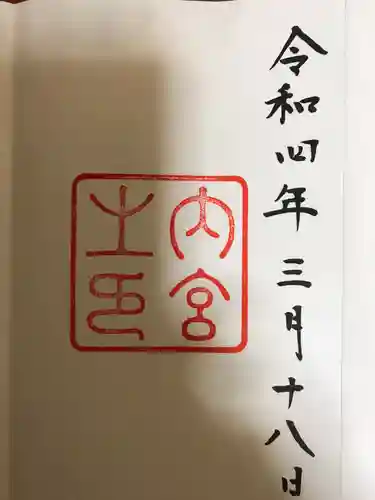 令和四年三月十八日
内宮
之印